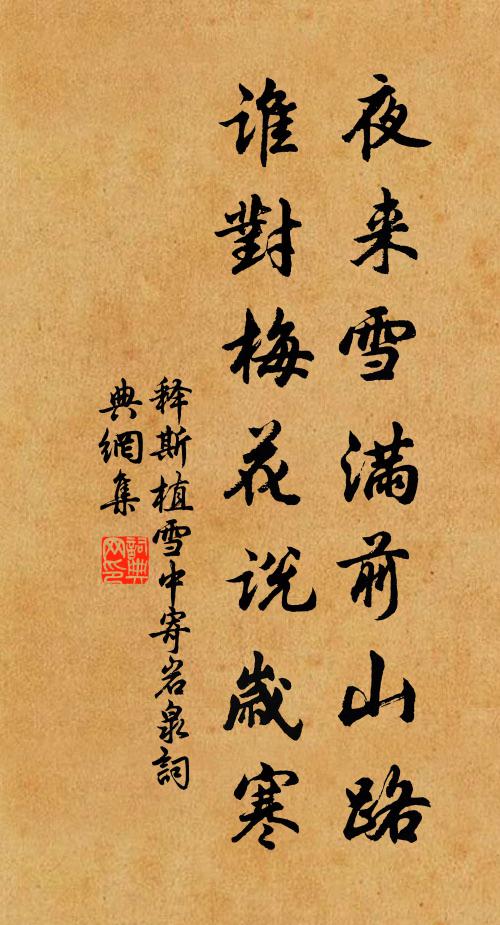 夜来雪满前山路
谁對梅花说歲寒
释斯植雪中寄岩泉詞
典網集
詞典网印